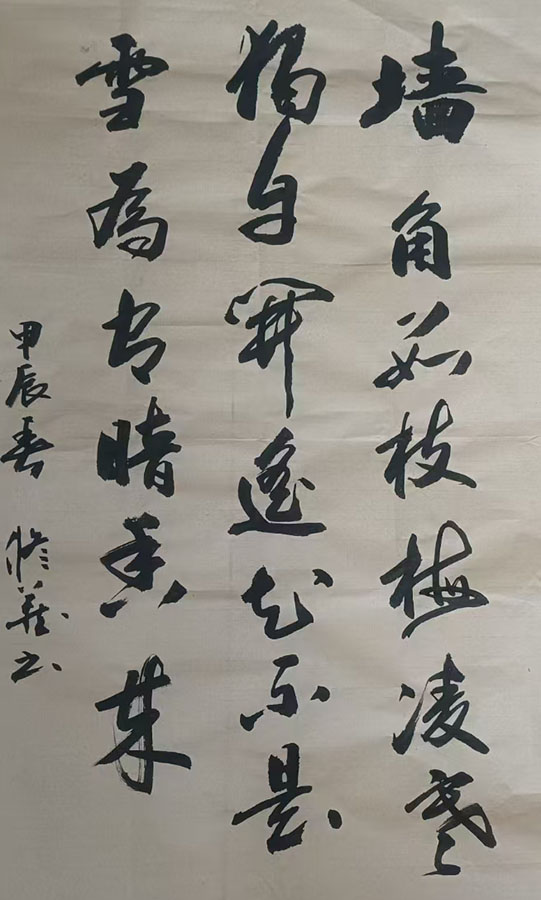 墙角数枝梅凌寒
獨自開遥知不是
雪為有暗香来
甲辰春 書